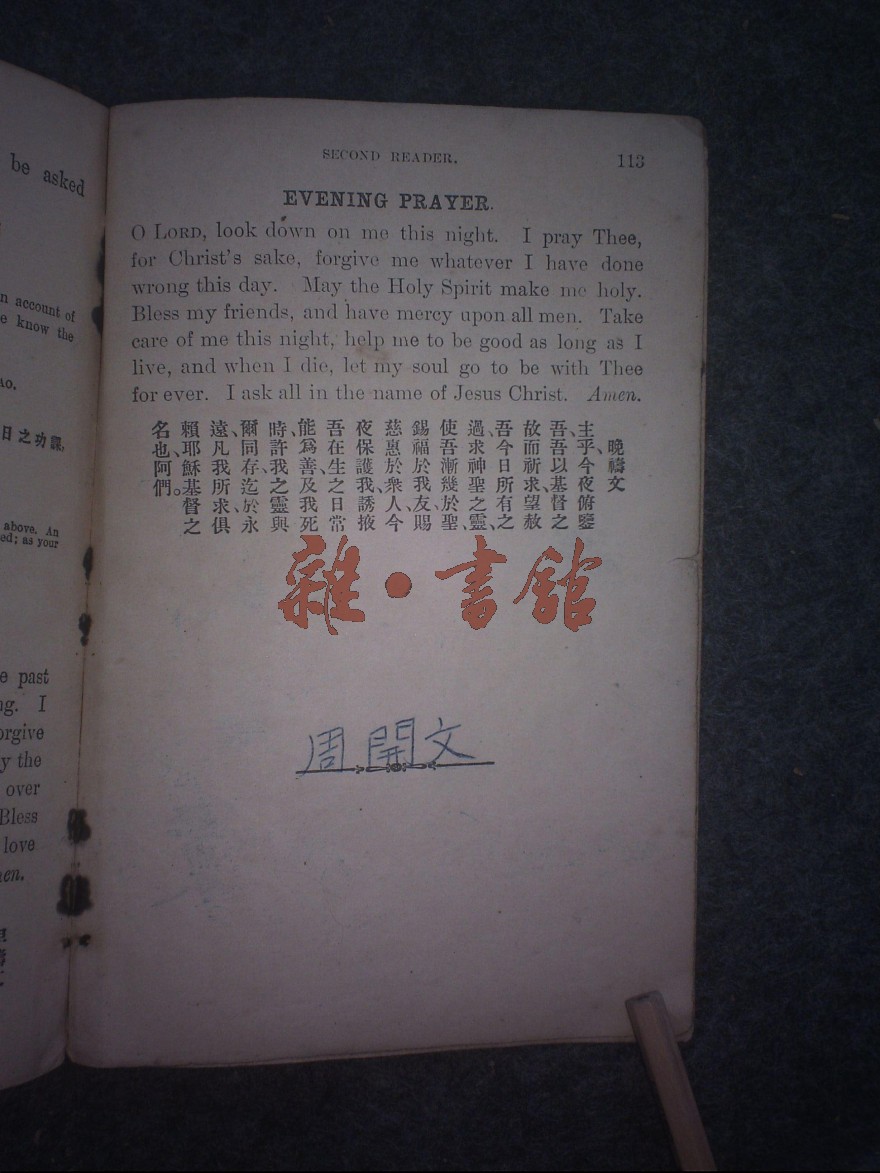 be asked
n account of
e know the
AO.
日之功課,
above. An
ed; as your
e past
ng. I
orgive
y the
over
Bless
love
men.
SECOND READER. 113
EVENING PRAYER.
O LORD, look down on me this night. I pray Thee,
for Christ's sake, forgive me whatever I have done
wrong this day. May the Holy Spirit make me holy.
Bless my friends, and have mercy upon all men. Take
care of me this night, help me to be good as long as I
live, and when I die, let my soul go to be with Thee
for ever. I ask all in the name of Jesus Christ. Amen.
晚禱文
主乎、今夜俯鑒
吾、吾以基督之
故而祈求、望赦
吾今日所有之
過、求神聖之靈、
使吾漸幾於聖、
錫福於我友、賜
慈惠於衆人、今
夜保護我、誘掖
吾在生之日常
能爲善、及我死
時、許我之靈與
爾同存、迄於永
遠、凡我所求、俱
賴耶穌基督之
名也、阿們。
雜·書館
周開文